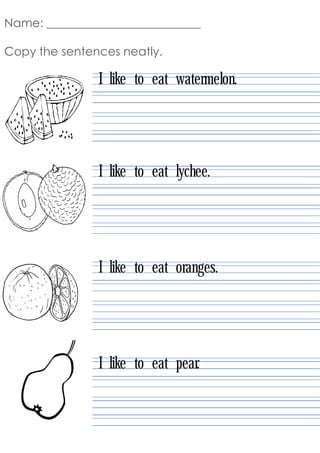 Name: _________________________
Copy the sentences neatly.
I like to eat watermelon.
I like to eat lychee.
I like to eat oranges.
I like to eat pear.